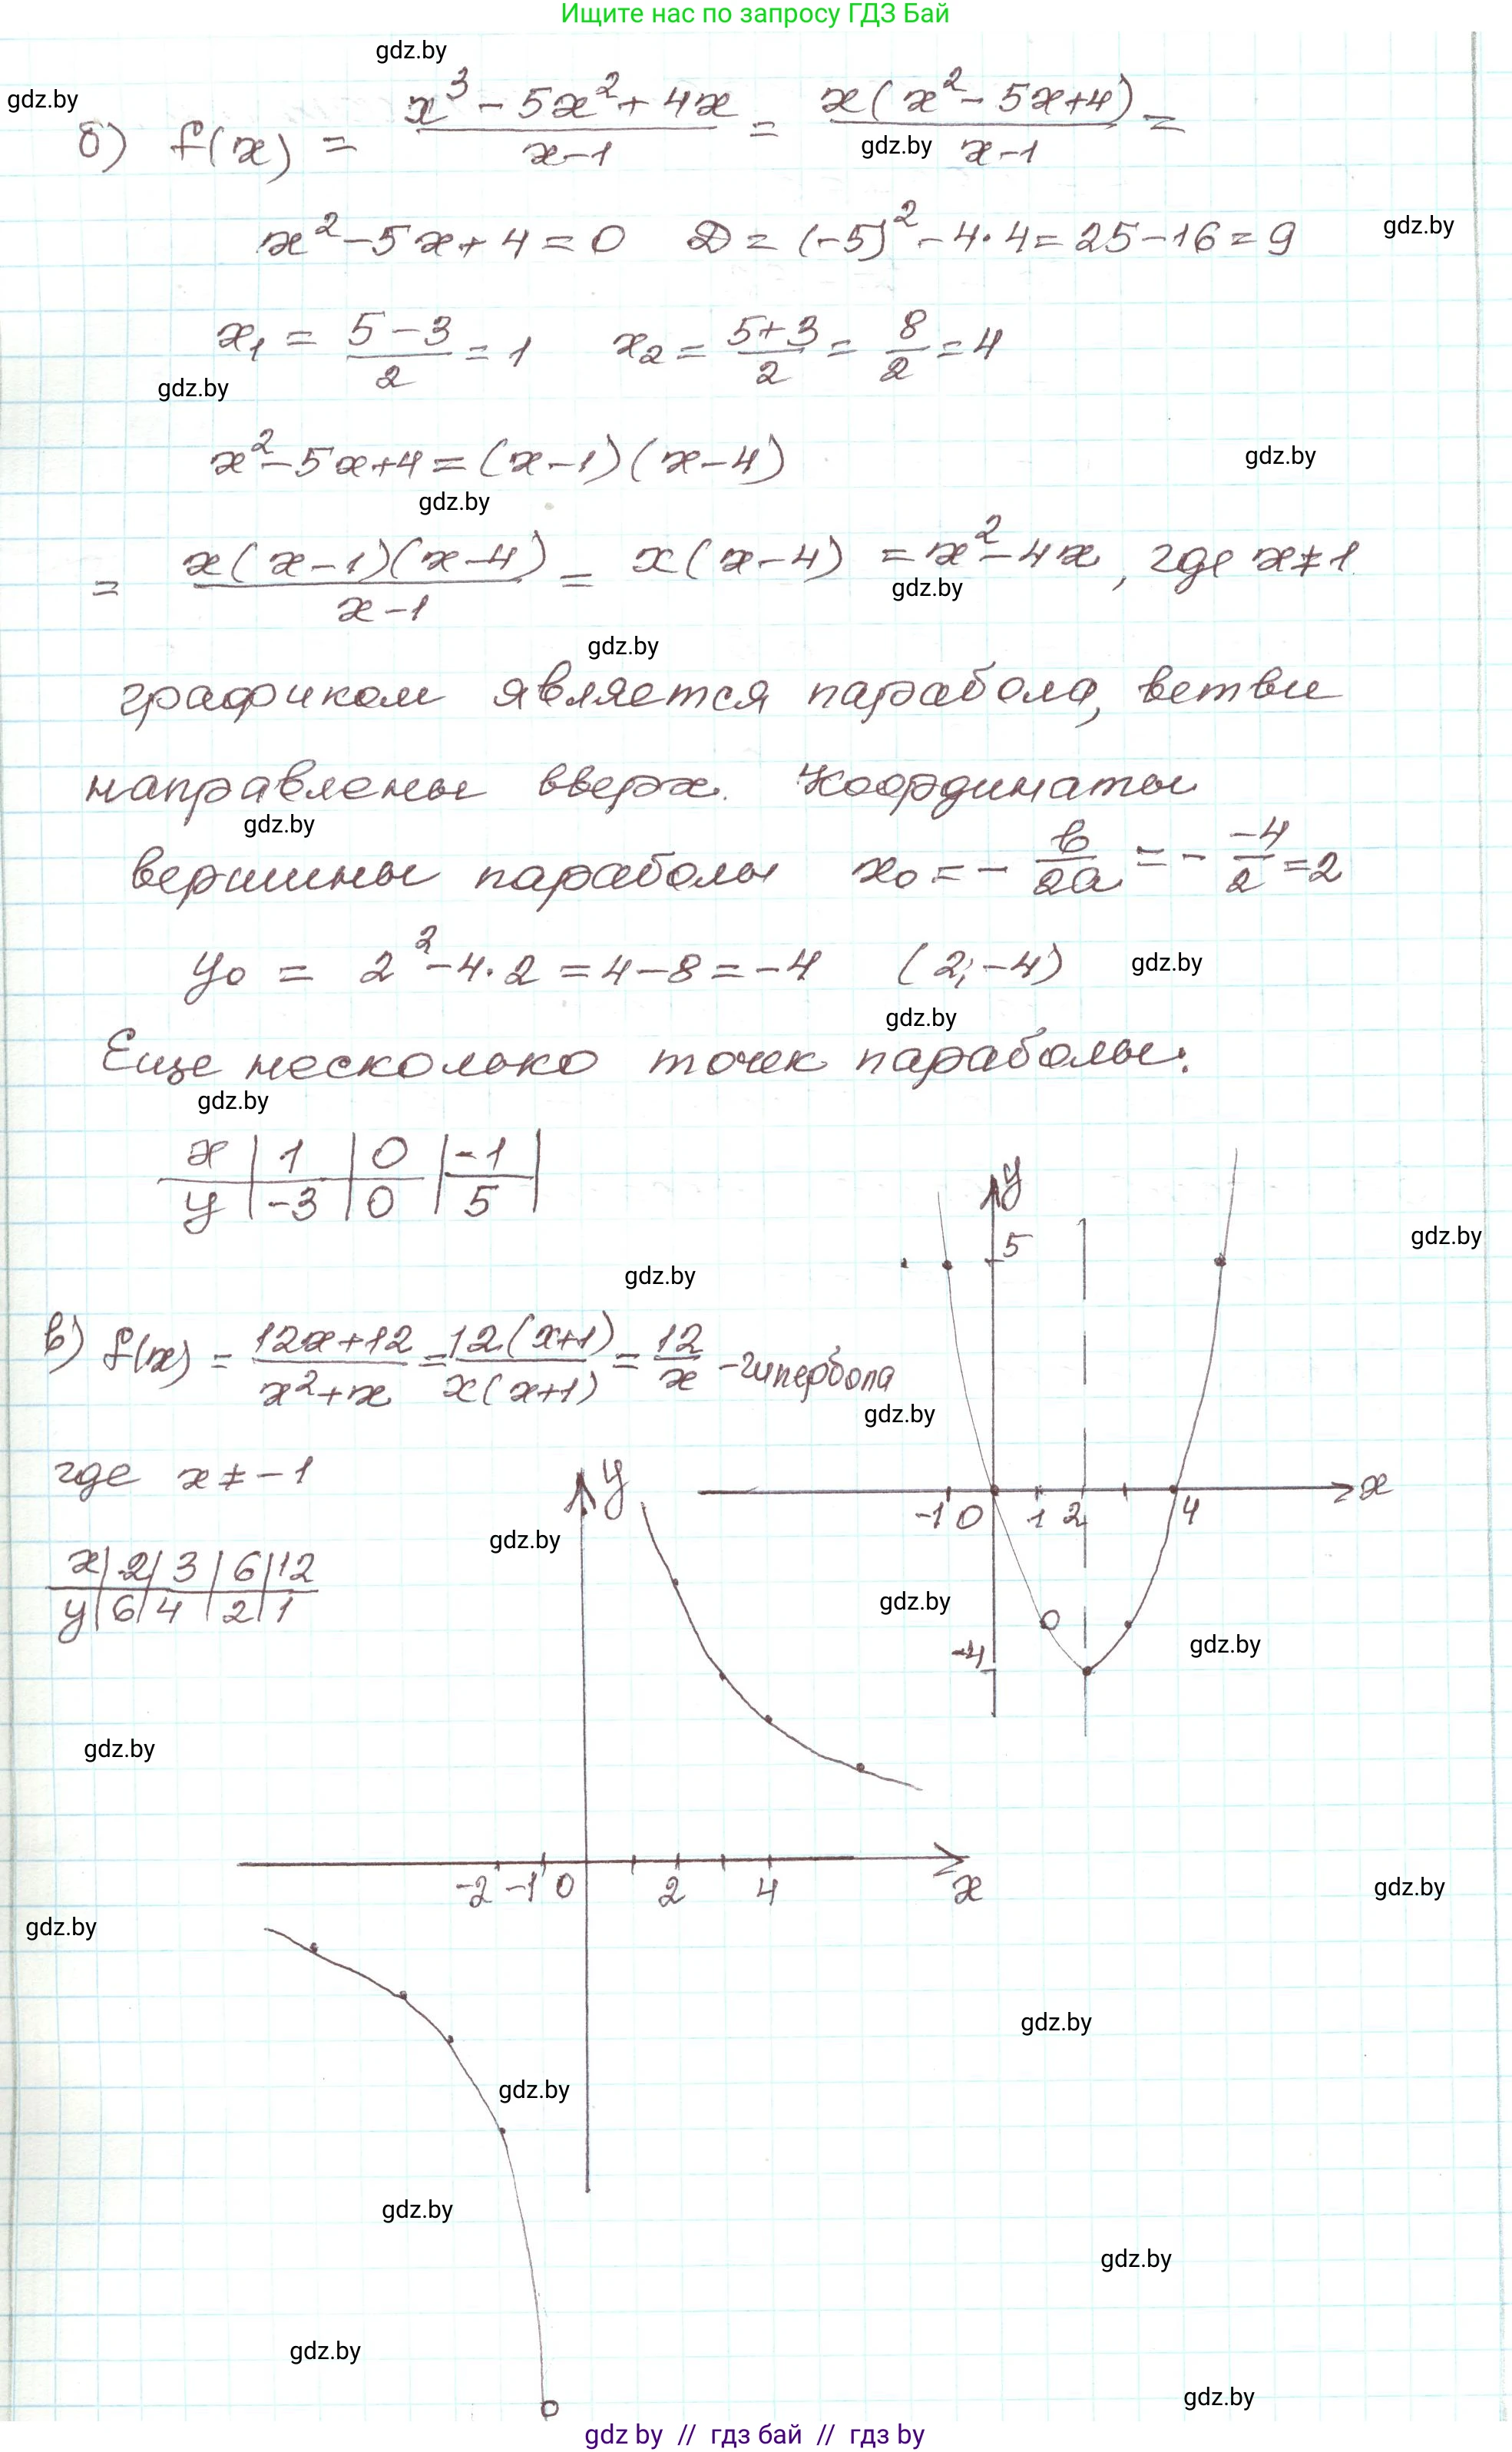 Ищите нас по запросу ГДЗ Бай
gdz.by
gdz.by
б) f(x) = (x³ - 5x² + 4x)/(x-1) = x(x² - 5x+4)/(x-1) =
gdz.by
x² - 5x + 4 = 0 D = (-5)² - 4·4 = 25 - 16 = 9
gdz.by
x₁ = (5-3)/2 = 1 x₂ = (5+3)/2 = 8/2 = 4
gdz.by
x² - 5x+4 = (x-1)(x-4)
gdz.by
gdz.by
= x(x-1)(x-4)/(x-1) = x(x-4) = x² - 4x, где x≠1
gdz.by
gdz.by
графиком является парабола, ветви
направлены вверх. Координаты
gdz.by
вершины параболы x₀ = - b/2a = - -4/2 = 2
y₀ = 2² - 4·2 = 4-8 = -4 (2; -4)
gdz.by
gdz.by
Еще несколько точек параболы:
gdz.by
x | 1 | 0 | -1 |
y | -3 | 0 | 5 |
y
5
gdz.by
gdz.by
в) f(x) = (12x+12)/(x²+x) = 12(x+1)/(x(x+1)) = 12/x - гипербола
gdz.by
где x ≠ -1
y
-1 0 1 2 4 x
gdz.by
x | 2 | 3 | 6 | 12
y | 6 | 4 | 2 | 1
gdz.by
-4
gdz.by
gdz.by
-2 -1 0 2 4 x
gdz.by
gdz.by
gdz.by
gdz.by
gdz.by
gdz.by
gdz.by
gdz.by
gdz by // гдз бай // гдз by